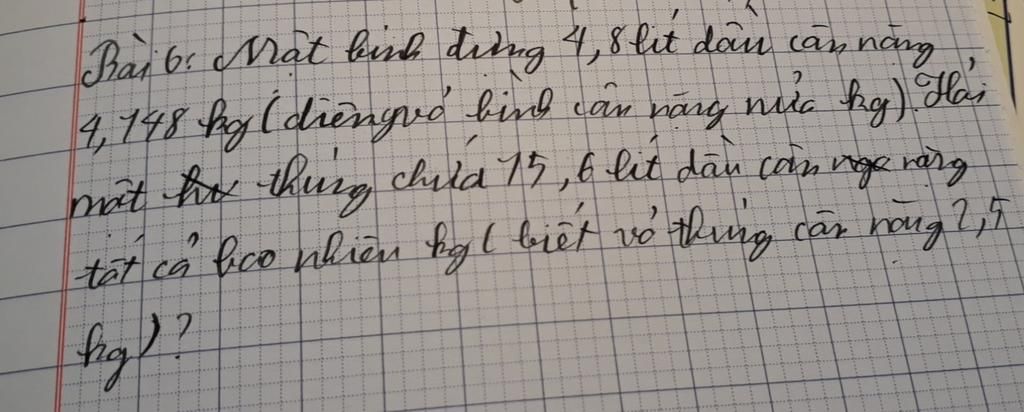 Bài 6: Một bình đựng 4,8 lít dầu cân nặng
4,148 kg (diêng vỏ bình cân nặng nửa kg). Hỏi
một thùng chứa 15,6 lít dầu cân nặng
tất cả bao nhiêu kg ( biết vỏ thùng cân nặng 2,5
kg)?